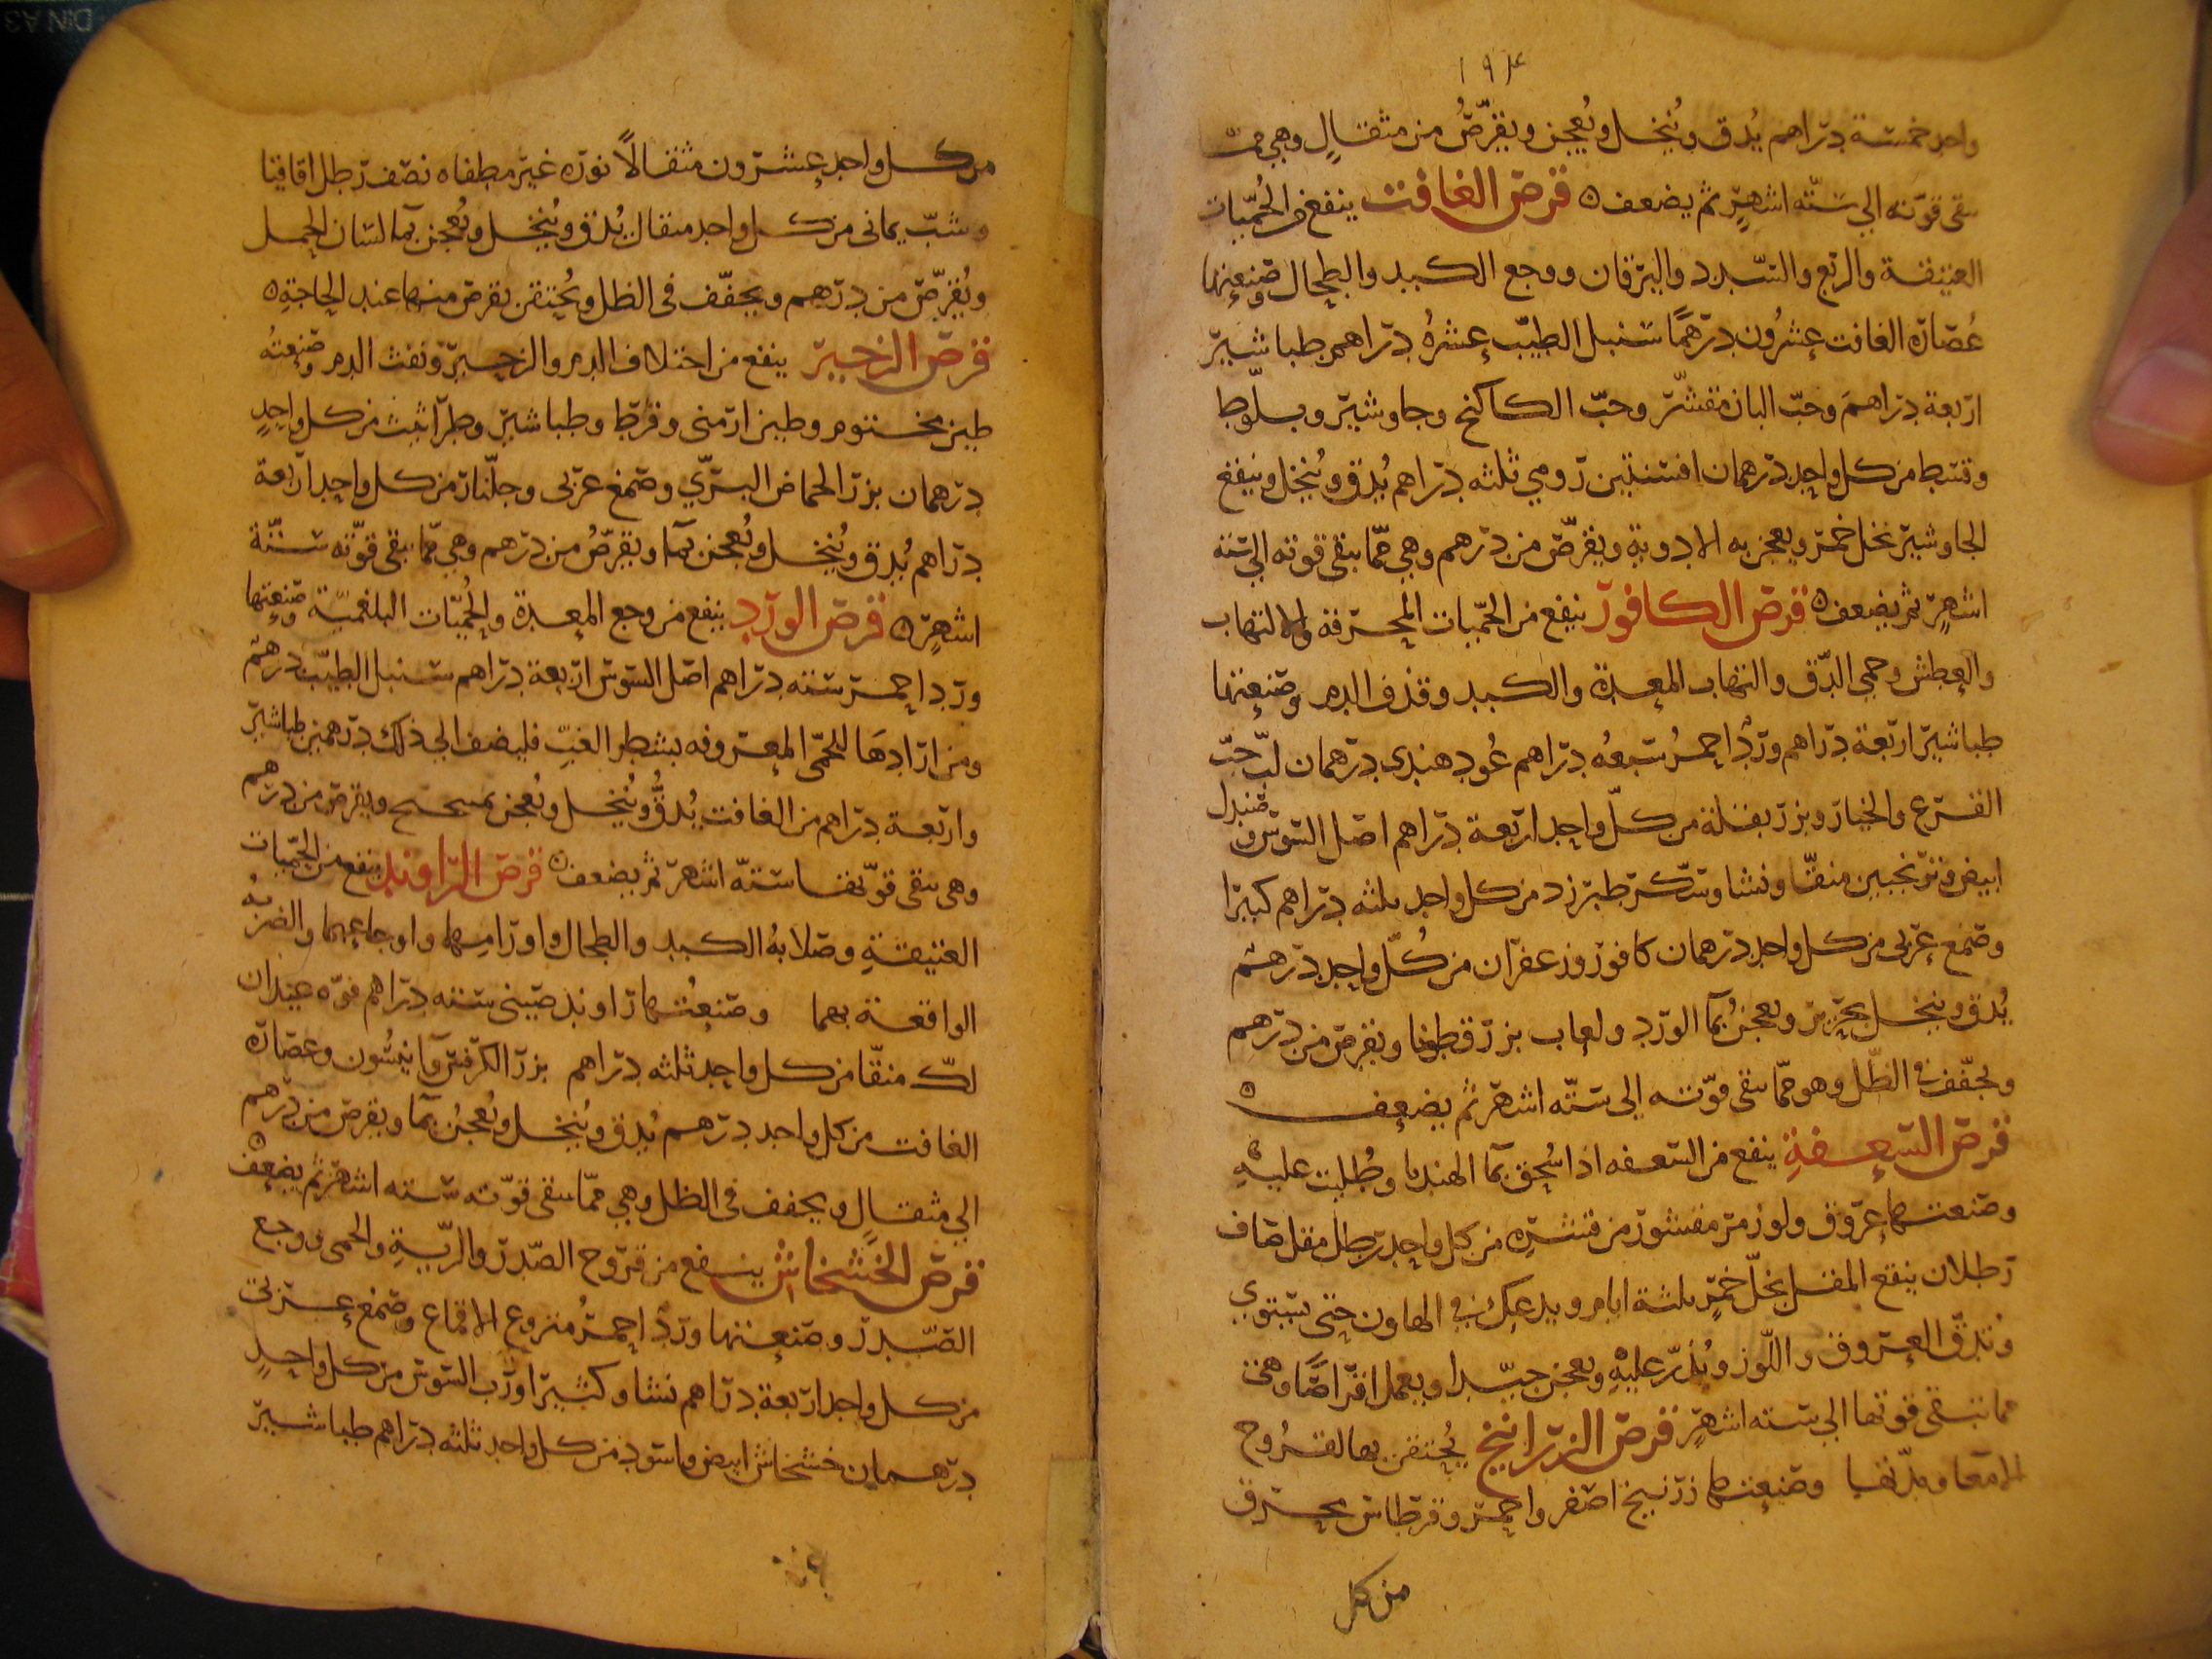 ١٩٤
واحد خمسة دراهم يُدق ويُنخل ويُعجن ويقرّصُ من مثقالٍ وهي مما
تبقى قوته الى ستّه اشهرٍ ثم يضعف ه قرص الغافت ينفع من الحُمّيات
العتيقة والربع والسّدد واليرقان ووجع الكبد والطحال وصنعتها
عُصاره الغافت عشرُون درهمًا سنبل الطيّب عشرهُ دراهم طباشير
اربعة دراهمَ وحبّ البان مقشّر وحبّ الكاكنج وجاوشير وبلّوط
وقسط من كل واحد درهمان افسنتين رومي ثلثه دراهم يُدق ويُنخل وينقع
الجاوشير بخل خمر ويعجن به الادوية ويقرّص من درهم وهي ممّا يبقى قوته الى سته
اشهرٍ ثم يضعف ه قرص الكافور ينفع من الحمّيات المحترقه والالتهاب
والعطش وحمى الدّق والتهاب المعدة والكبد وقذف الدم وصنعتها
طباشير اربعة دراهم وردٌ احمرُ سبعُه دراهم عُود هندى درهمان لبّ حبّ
القرع والخيار وبزر بقلة من كلّ واحد اربعة دراهم اصل السّوس وصندل
ابيض وترنجبين منقّا ونشا وسكّر طبرزد من كل واحد ثلثه دراهم كثيرا
وصمغ عربى من كل واحد درهمان كافور وزعفران من كُلّ واحد درهم
يُدق وينخل بحريرٍ ويعجنُ بمآ الورد ولعاب بزر قطونا ويقرص من درهم
ويجفّف فى الظّل وهو ممّا يبقى قوّته إلى ستّه اشهر ثم يضعف ه
قرص السّعفةِ ينفع من السعفه اذا سُحق بمآ الهندبا وطُليت عليهِ
وصنعتها عروق ولوز مر مقشور من قشره من كل واحد رطل مقل صاف
رطلان ينقع المقل بخلّ خمرٍ ثلثة ايام ويدعك فى الهاون حتى يستوى
ويُدقّ العروق واللّوز ويُذرّ عليهِ ويعجن جيّدا ويعمل اقراصًا وهى
مما تبقى قوتها الى سته اشهرٍ قرص الزرانيخ يُحتقن بها لقرُوح
الامعا وصنعتها زرنيخ اصفر واحمر وقرطاس محترق
من كل
من كل واحد عشرون مثقالًا نوره غير مطفاه نصف رطل اقاقيا
وشبّ يمانى من كل واحد مثقال يُدق ويُنخل ويُعجن بمآ لسان الحمل
ويُقرّص من درهم ويجفّف فى الظل ويُحتقن بقرص منها عند الحاجةِ ه
قرص الزحير ينفع من اختلاف الدم والزحير ونفث الدم وصنعتُه
طين مختوم وطين ارمنى وقرظ وطباشير وطراثيث من كل واحدٍ
درهمان بزر الحماض البرّي وصمغ عربى وجلّنار من كل واحد اربعة
دراهم يُدق ويُنخل ويُعجن بمآ ويقرصُ من درهم وهي ممّا يبقى قوّته ستّة
اشهرٍ ه قرص الورد ينفع من وجع المعدة والحُمّيات البلغميّة وصنعتها
ورد احمر سته دراهم اصل السوس اربعة دراهم سنبل الطيّب درهم
ومن ارادهَا للحمّى المعروفه بشطر الغبّ فليضف الى ذلك درهمين طباشير
واربعة دراهم من الغافت يُدقُّ ويُنخل ويُعجن بميبختج ويقرص من درهم
وهى تبقى قوّتها ستّه اشهر ثم يضعف ه قرص الراوند ينفع من الحمّيات
العتيقةِ وصلابةُ الكبد والطحال واورامها واوجاعهما والضربهُ
الواقعة بهما وصنعتُها راوند صينى سته دراهم فوّه عيدان
لكّ منقّا من كل واحد ثلثه دراهم بزر الكرفس وآنيسُون وعصاره
الغافت من كل واحد درهم يُدق ويُنخل ويُعجنُ بمآ ويقرص من درهم
الى مثقالٍ ويجفف فى الظل وهي ممّا يبقى قوّته سته اشهر ثم يضعف ه
قرص الخشخاش ينفع من قروح الصّدر والريّةِ والحمى ووجع
الصّدر وصنعتها وردٌ احمرُ منزوع الاقماع وصمغ عربى
من كل واحد اربعة دراهم نشا وكثيرا ورُب السّوس من كل واحدٍ
درهمان خشخاش ابيض واسود من كل واحد ثلثه دراهم طباشير